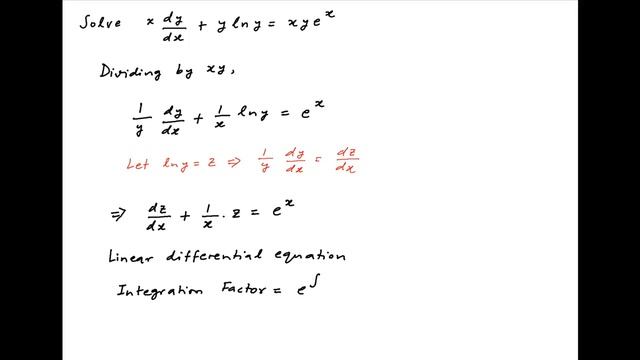 Solve x dy/dx + y ln y = x y e^x
Dividing by xy,
1/y dy/dx + 1/x ln y = e^x
Let ln y = z ⇒ 1/y dy/dx = dz/dx
⇒ dz/dx + 1/x . z = e^x
Linear differential equation
Integration Factor = e^∫